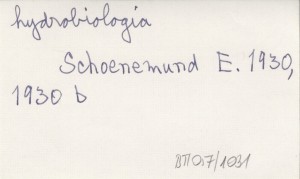 hydrobiologia
Schoenemund E. 1930,
1930 b